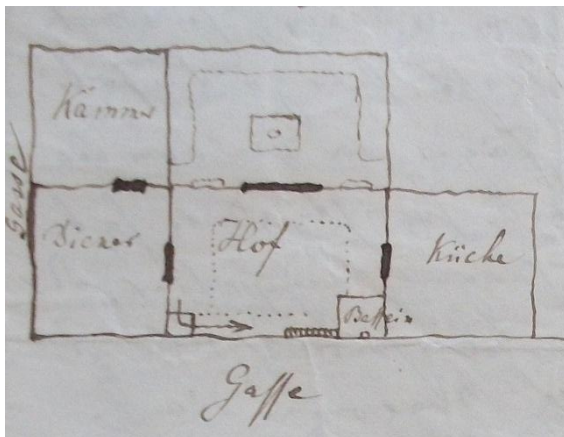 Kammer
Gasse
Diener
Hof
Küche
Bassin
Gasse